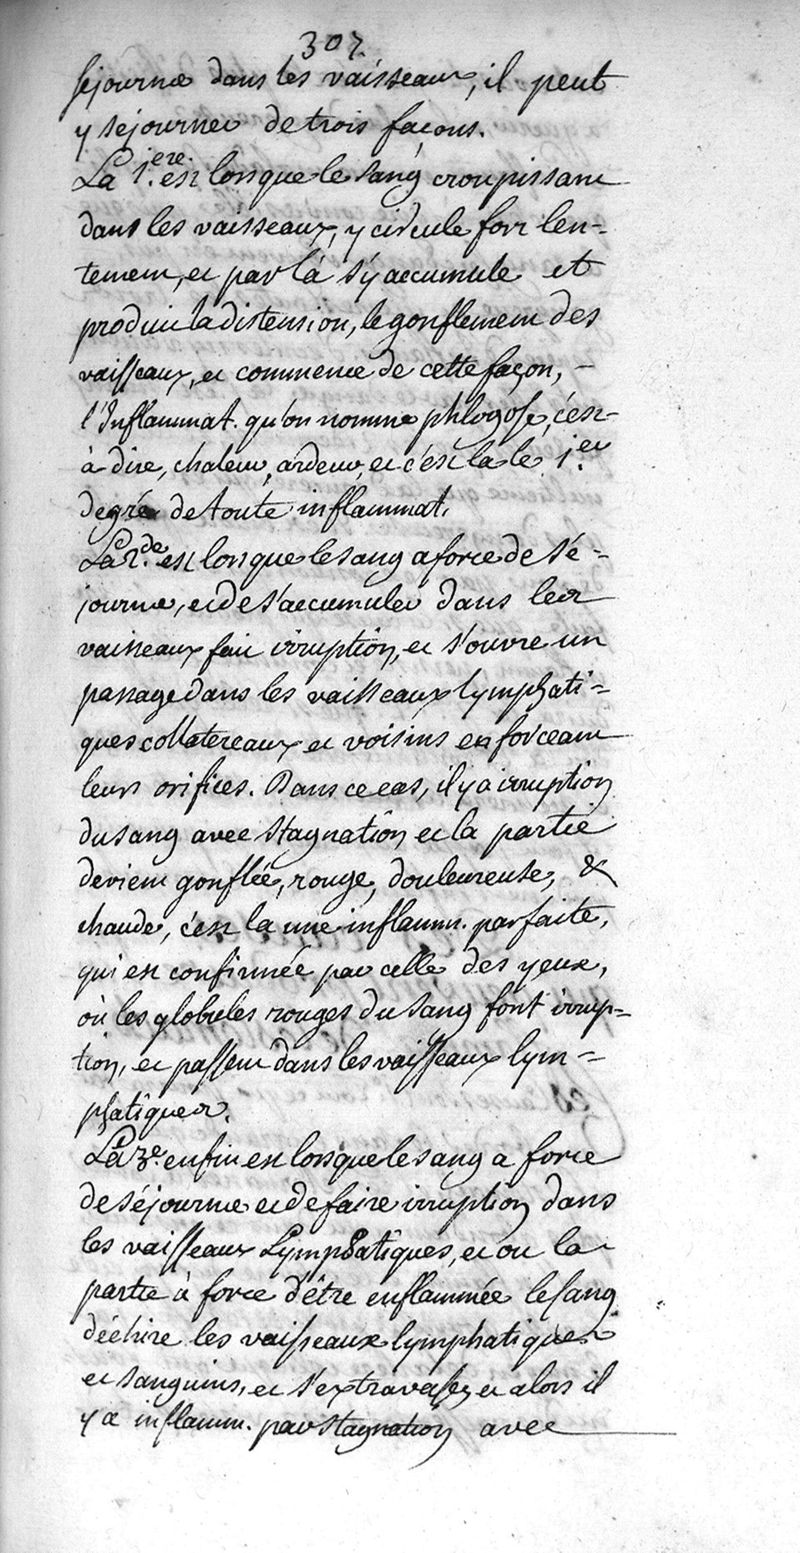 307.
séjourner dans les vaisseaux, il peut
y séjourner de trois façons.
La 1.ere est lorsque le sang croupissant
dans les vaisseaux, y circule fort len-
tement, et par là s'y accumule et
produit la distension, le gonflement des
vaisseaux, et commence de cette façon, -
l'Inflammat. qu'on nomme phlogose, c'est-
à dire, chaleur, ardeur, et c'est la le 1.er
degré de toute inflammat.
La 2.de est lorsque le sang a force de sé-
journer, et de s'accumuler dans les
vaisseaux fait irruption, et s'ouvre un
passage dans les vaisseaux lymphati=
ques collatereaux et voisins en forceant
leurs orifices. Dans ce cas, il y a irruption
du sang avec stagnation et la partie
devient gonflée, rouge, douleureuse, &
chaude, c'est la une inflamm. parfaite,
qui est confirmée par celle des yeux,
où les globules rouges du sang font irrup=
tion, et passent dans les vaisseaux lym=
phatiques.
La 3.e enfin est lorsque le sang a force
de séjourner et de faire irruption dans
les vaisseaux Lymphatiques, et ou la
partie à force d'être enflammée le sang
déchire les vaisseaux lymphatiques
et sanguins, et s'extravase, et alors il
y a inflamm. par stagnation avec